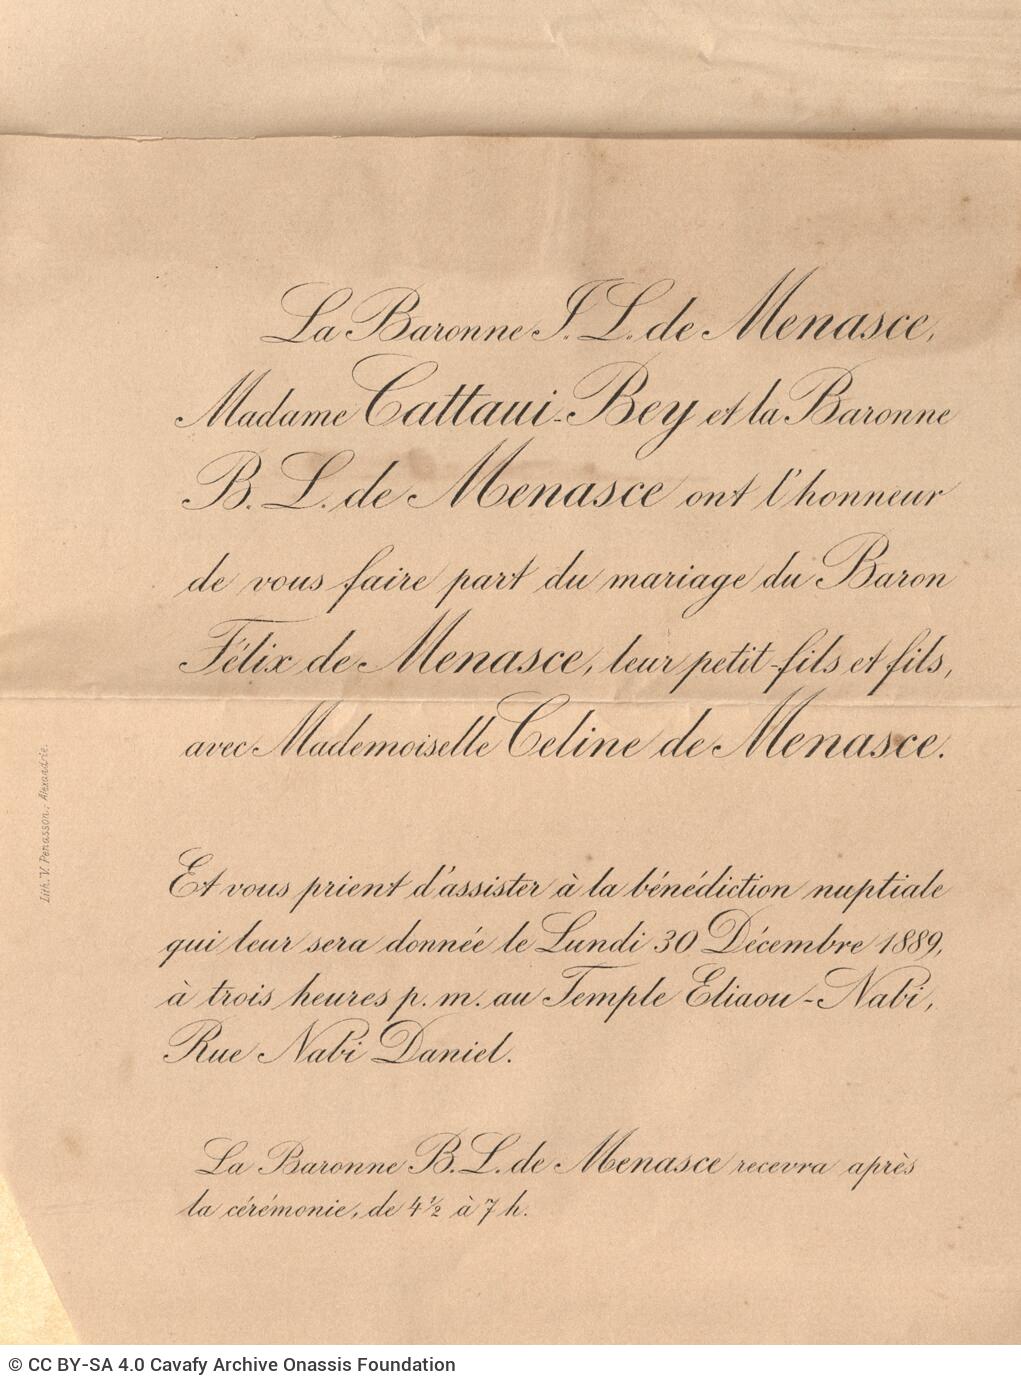 La Baronne J. L. de Menasce,
Madame Cattaui-Bey et la Baronne
B. L. de Menasce ont l'honneur
de vous faire part du mariage du Baron
Félix de Menasce, leur petit-fils et fils,
avec Mademoiselle Celine de Menasce.
Et vous prient d'assister à la bénédiction nuptiale
qui leur sera donnée le Lundi 30 Décembre 1889,
à trois heures p. m. au Temple Eliaou-Nabi,
Rue Nabi Daniel.
La Baronne B. L. de Menasce recevra après
la cérémonie, de 4 ½ à 7 h.
Lith. V. Penasson.- Alexandrie.
© CC BY-SA 4.0 Cavafy Archive Onassis Foundation